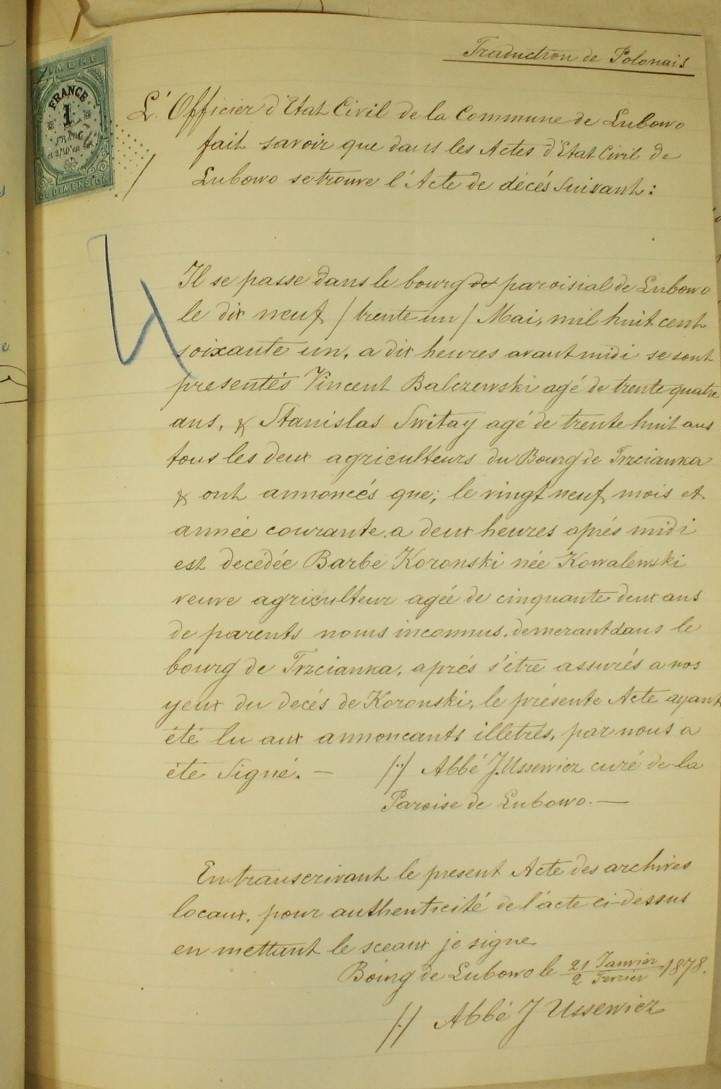 Traduction de Polonais
FRANCE
1
FRANC
L'Officier d'Etat Civil de la Commune de Lubowo
fait savoir que dans les Actes d'Etat Civil de
Lubowo se trouve l'Acte de décés suivant:
Il se passe dans le bourg paroisial de Lubowo
le dix neuf /trente un/ Mai, mil huit cent
soixante un, a dix heures avant midi se sont
presentés Vincent Balczewski agé de trente quatre
ans, & Stanislas Switay agé de trente huit ans
tous les deux agriculteurs du Bourg de Trzcianka
& ont annoncés que, le vingt neuf mois et
année courante a deux heures aprés midi
est decedée Barbe Koronski née Kowalewski
veuve agriculteur agée de cinquante deux ans
de parents noms inconnus, demerant dans le
bourg de Trzcianka, aprés s'être assurés a nos
yeux du decés de Koronski, le présente Acte ayant
été lu aux annoncants illetrés, par nous a
été Signé. — /-/ Abbé J. Ussewicz curé de la
Paroise de Lubowo. —
En transcrivant le present Acte des archives
locaux, pour authenticité de l'acte ci-dessus
en mettant le sceaux je signe
Boirg de Lubowo le 21 Janvier / 2 Fevrier 1878.
/-/ Abbé J Ussewicz